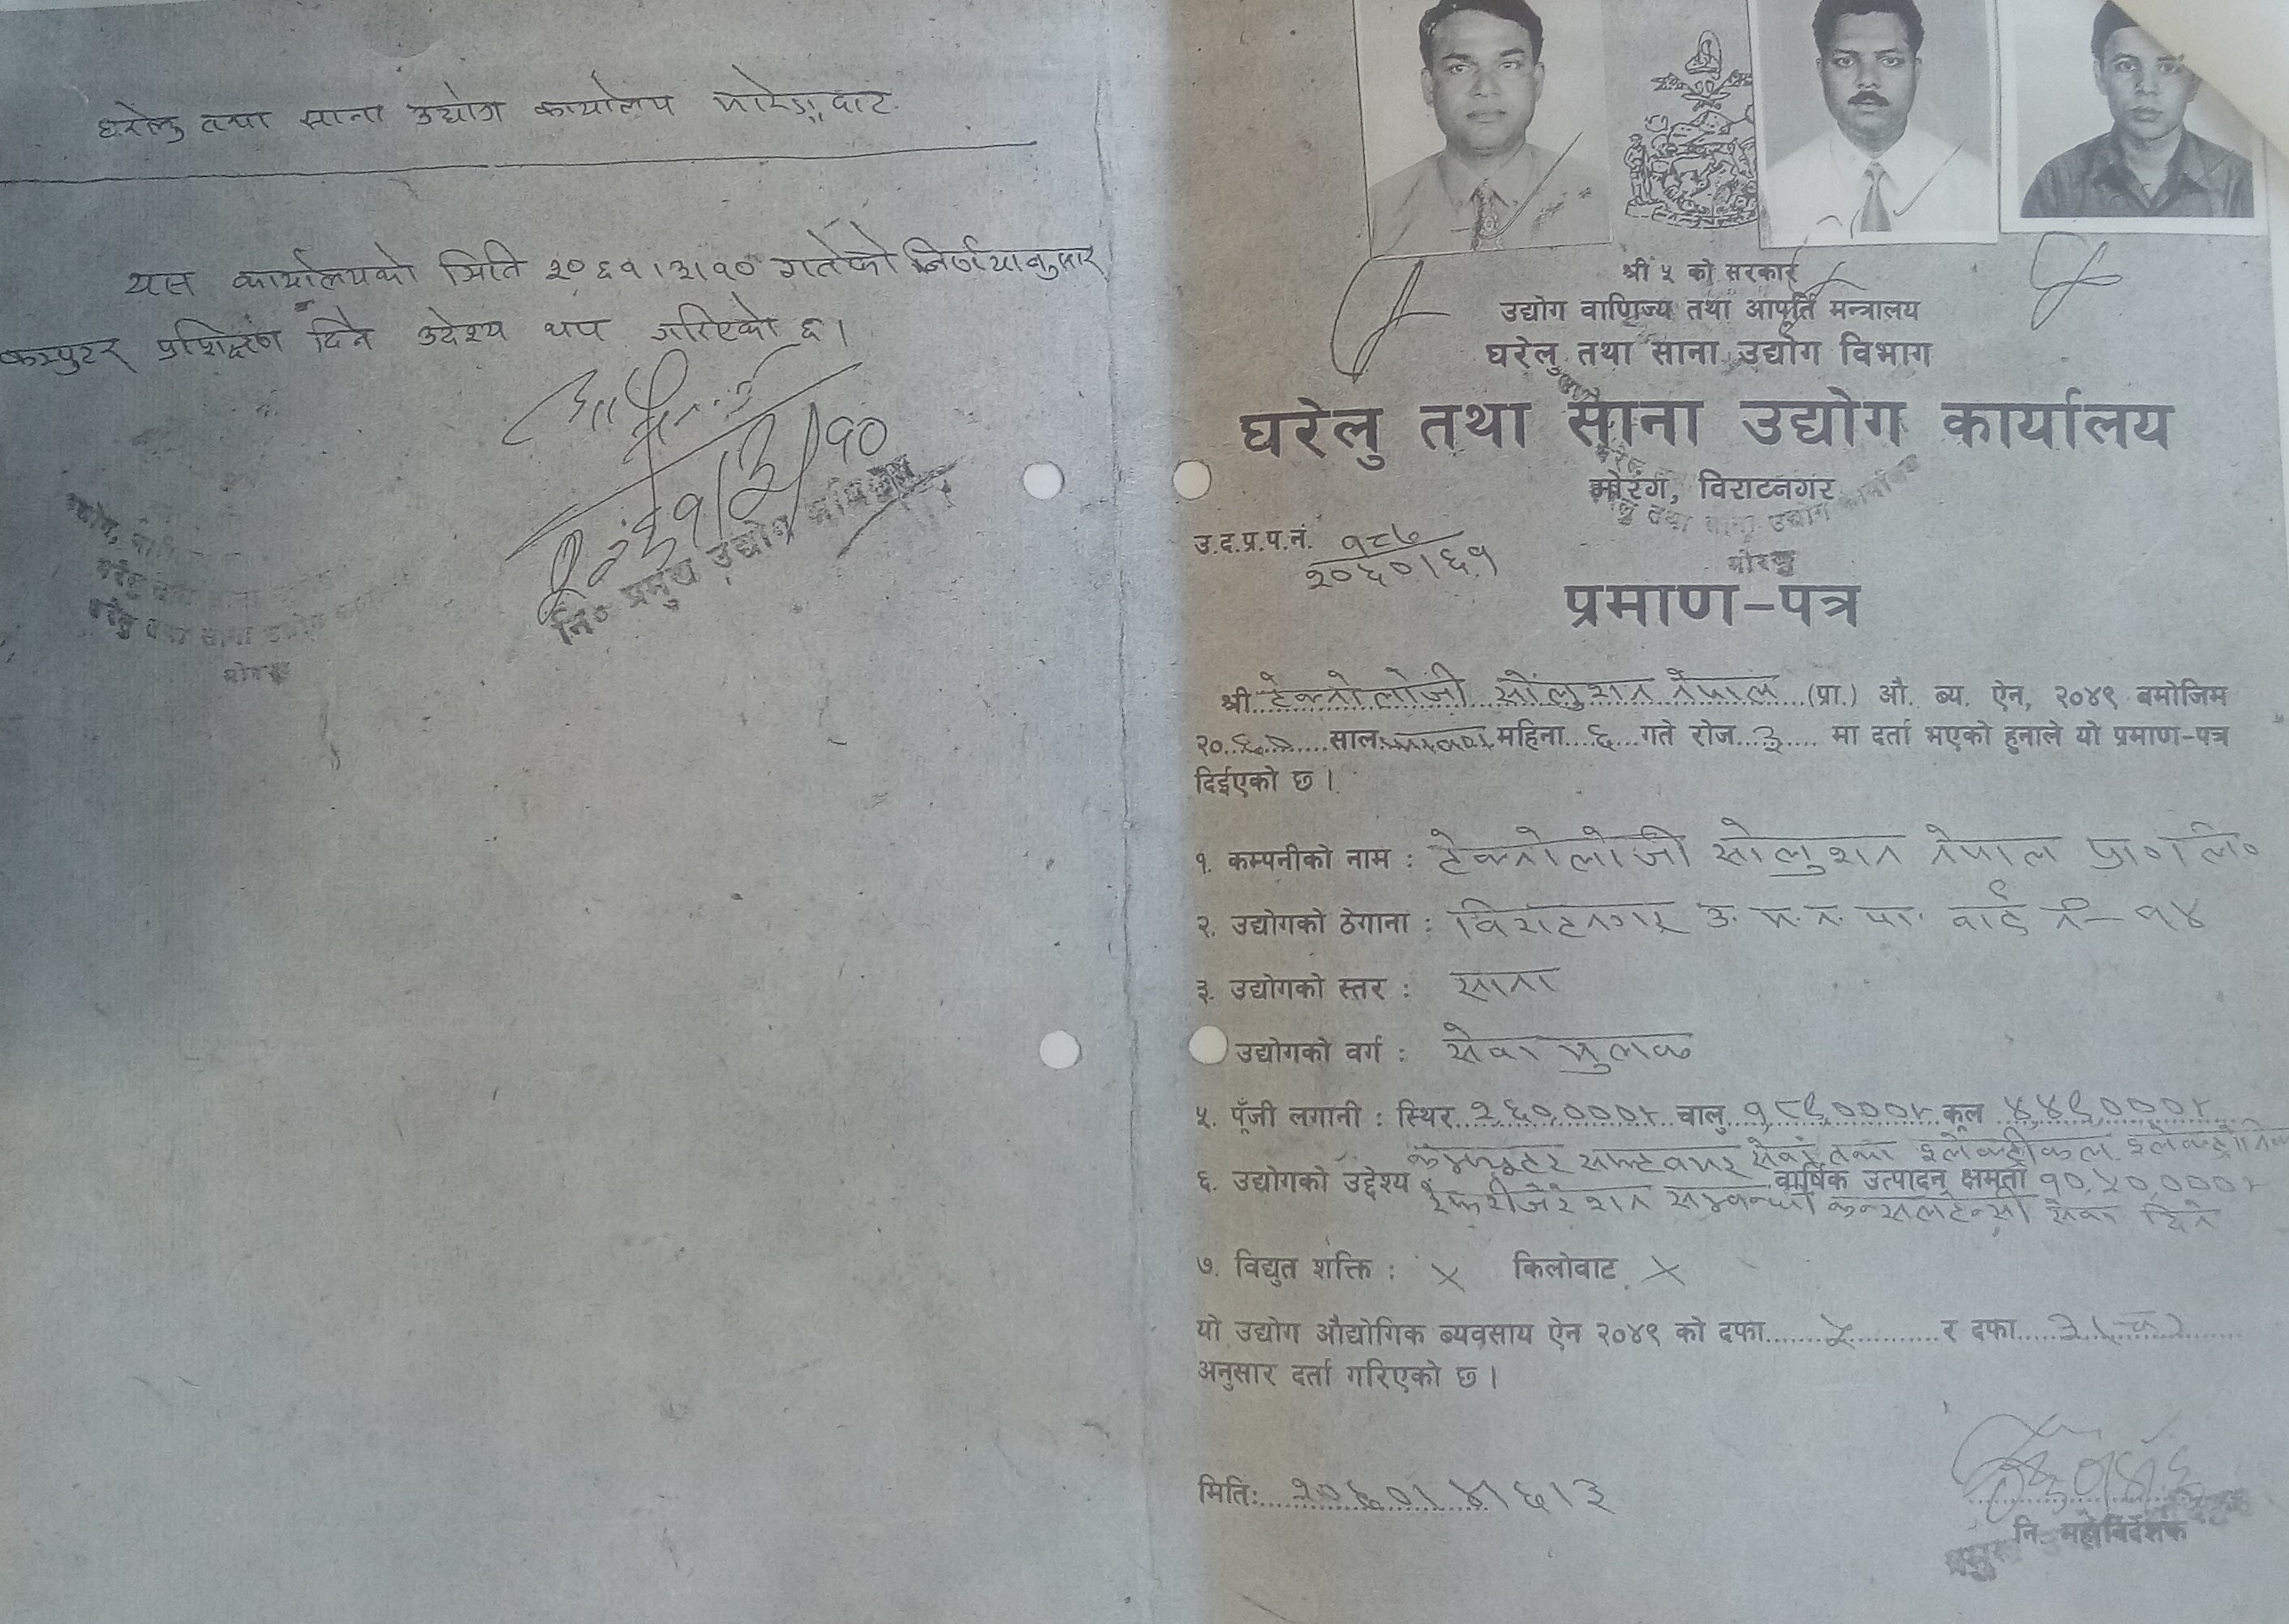 घरेलु तथा साना उद्योग कार्यालय मोरङ्ग बाट
यस कार्यालयको मिति २०६१।३।१० गतेको निर्णयानुसार
कम्प्युटर प्रशिक्षण दिने उदेश्य थप गरिएको छ।
२०६१।३।१०
नि० प्रमुख उद्योग अधिकृत
घरेलु तथा साना उद्योग
मोरङ्ग
श्री ५ को सरकार
उद्योग वाणिज्य तथा आपूर्ति मन्त्रालय
घरेलु तथा साना उद्योग विभाग
घरेलु तथा साना उद्योग कार्यालय
मोरंग, विराटनगर
घरेलु तथा साना उद्योग कार्यालय
मोरङ्ग
उ.द.प्र.प.नं. १८७
२०६०।६१
प्रमाण-पत्र
श्री टेक्नोलोजी सोलुशन नेपाल (प्रा.) औ. ब्य. ऐन, २०४९ बमोजिम
२०६० साल श्रावण महिना ६ गते रोज ३ मा दर्ता भएको हुनाले यो प्रमाण-पत्र
दिईएको छ ।
१. कम्पनीको नाम : टेक्नोलोजी सोलुशन नेपाल प्रा० लि०
२. उद्योगको ठेगाना : विराटनगर उ. म. न. पा. वार्ड नं- १४
३. उद्योगको स्तर : साना
उद्योगको वर्ग : सेवा मुलक
५. पूँजी लगानी : स्थिर २,६०,०००।- चालु १,८९,०००।- कूल ४,४९,०००।-
कम्प्युटर सफ्टवयर सेवा तथा इलेक्ट्रीकल इलेक्ट्रोनिक
६. उद्योगको उद्देश्य वार्षिक उत्पादन क्षमता १०,५०,०००।-
रेफ्रीजेरेशन सम्बन्धी कन्सलटेन्सी सेवा दिने
७. विद्युत शक्ति : × किलोवाट ×
यो उद्योग औद्योगिक ब्यवसाय ऐन २०४९ को दफा ५ र दफा ३
अनुसार दर्ता गरिएको छ ।
मिति: २०६०।४।६।३
नि. महानिर्देशक
प्रमुख